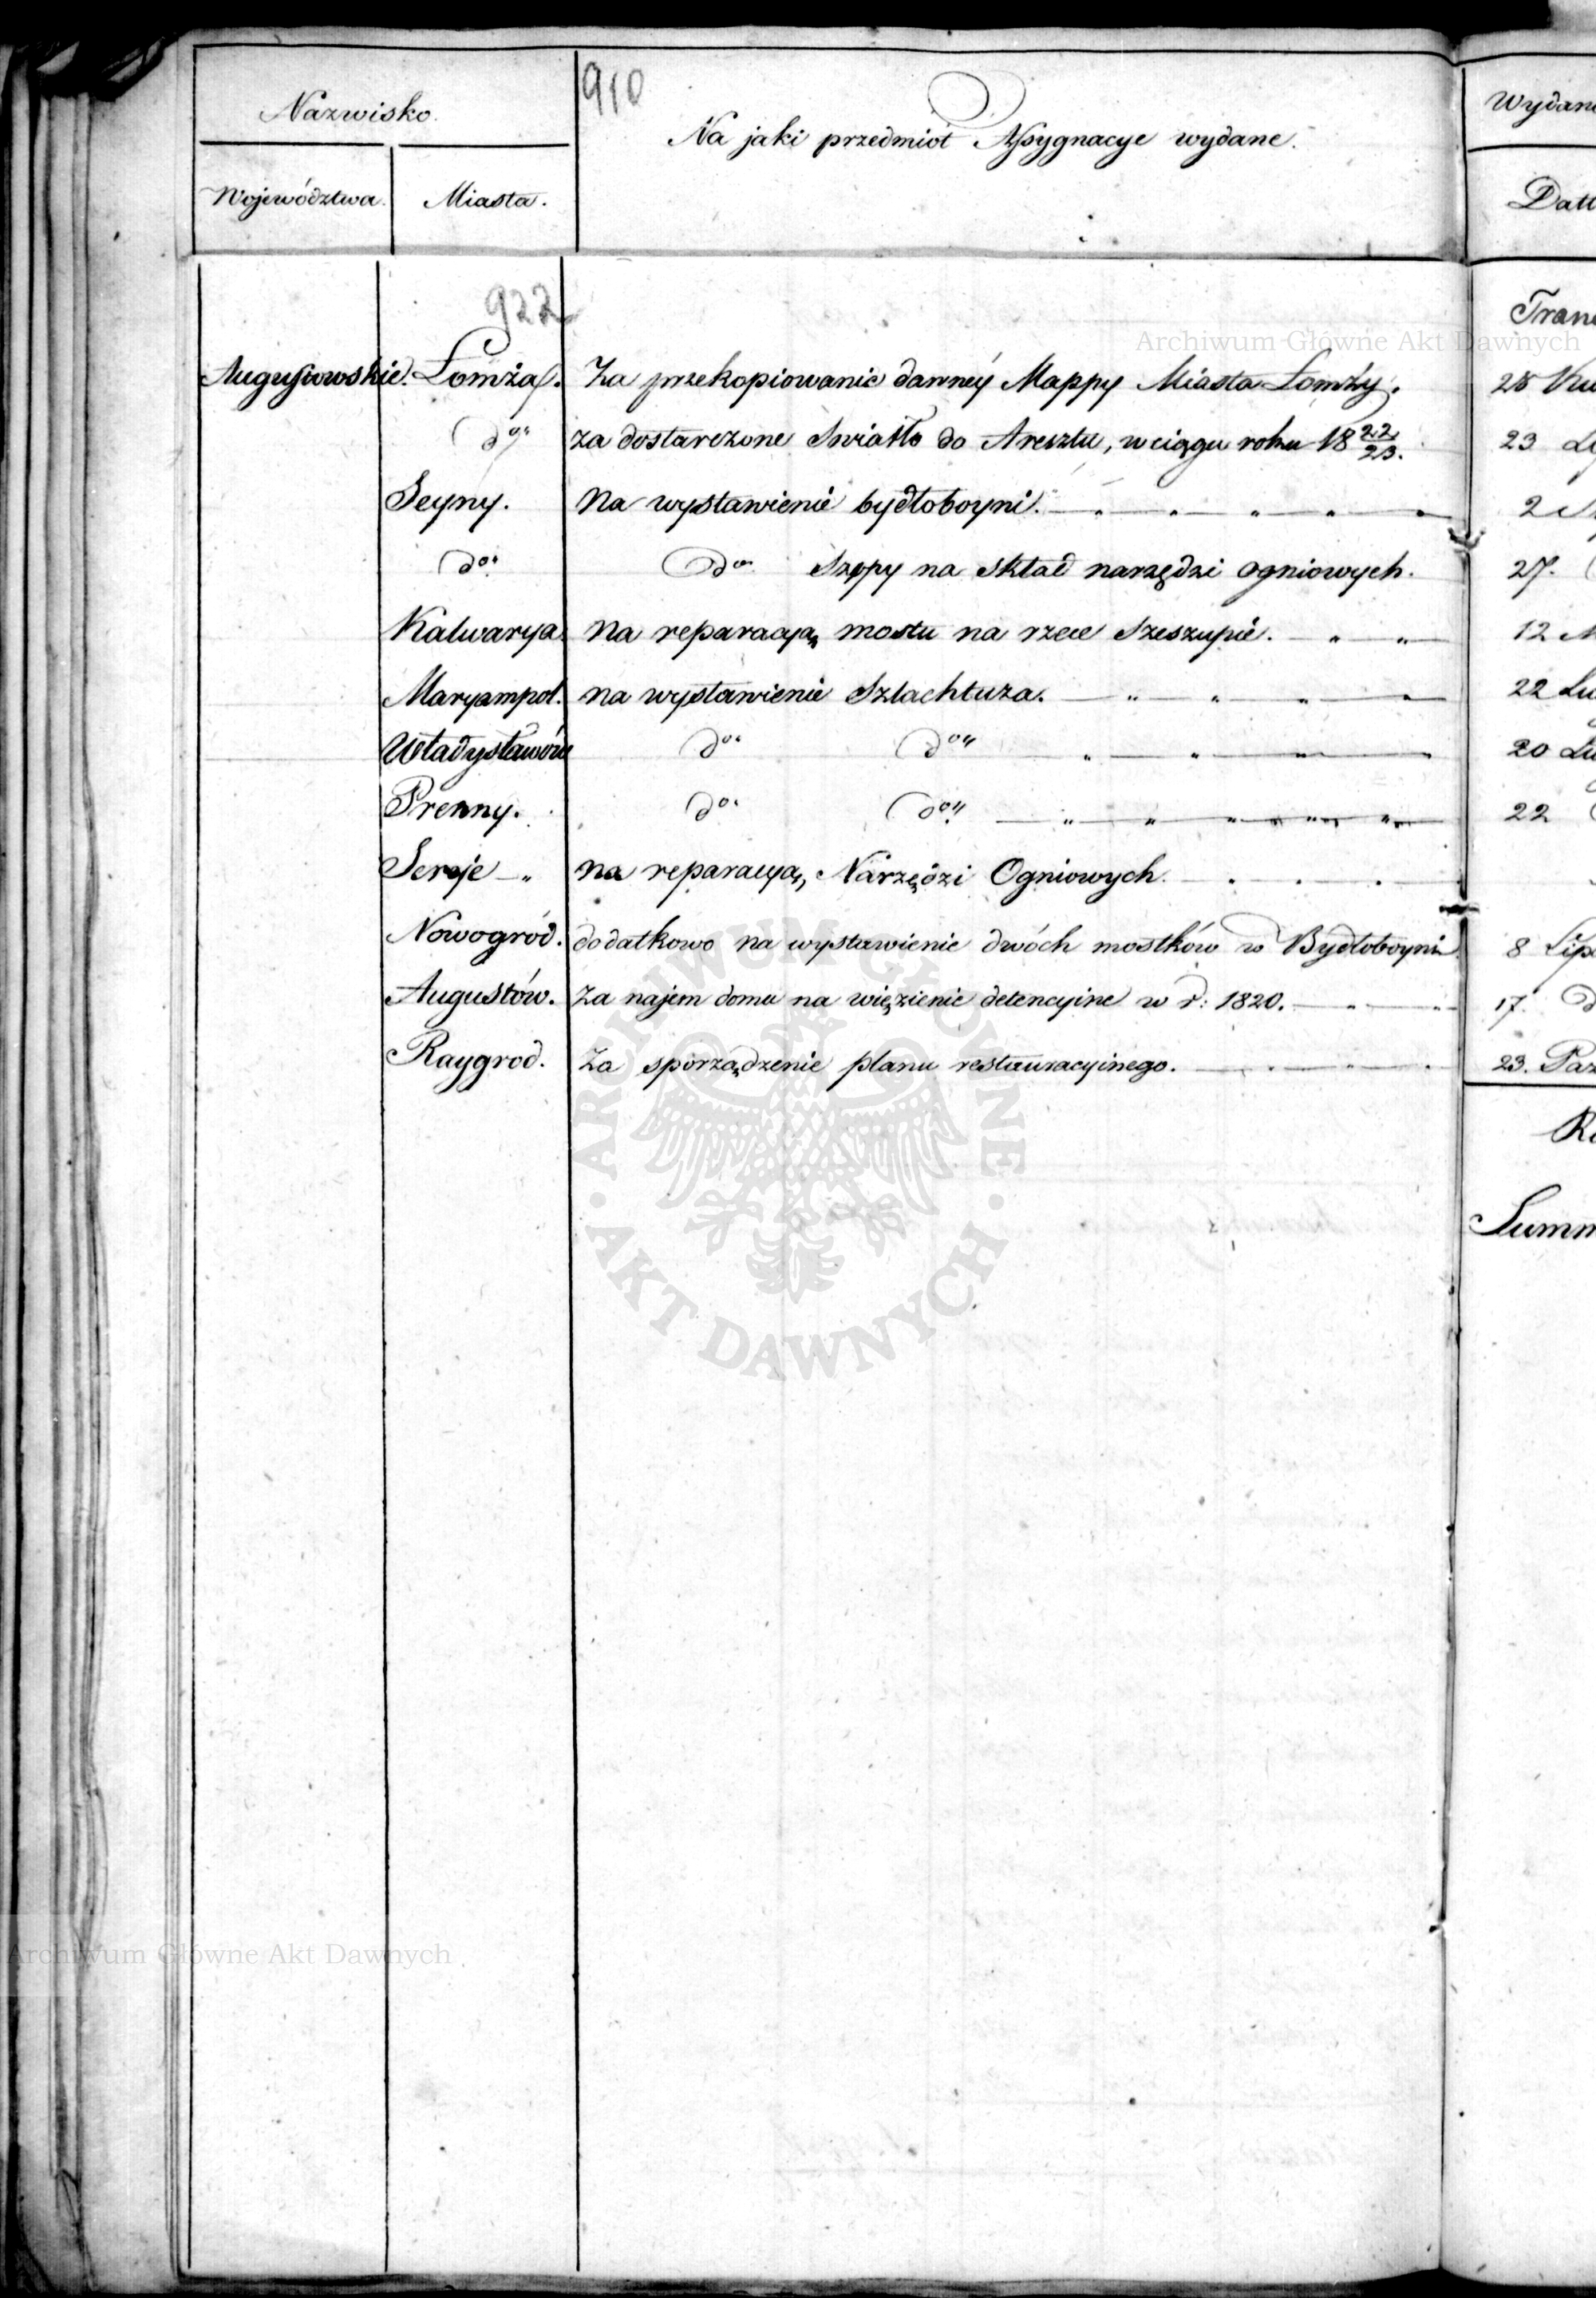 910
Nazwisko.
Na jaki przedmiot Assygnacye wydane.
Wydan
Województwa. Miasta.
Datt
922
Tran
Archiwum Główne Akt Dawnych
Augustowskie. Łomża. Za przekopiowanie dawnéy Mappy Miasta Łomży. 28 Kw
do. za dostarczone Swiatło do Aresztu, w ciągu roku 18 22/23. 23
Seyny. Na wystawienie bydłoboyni. 2
do. do. Szopy na skład narzędzi ogniowych. 27.
Kalwarya. Na reparacyą mostu na rzece Szeszupie. 12
Maryampol. na wystawienie Szlachtuza. 22 Lu
Władysławów do. do. 20 Lu
Prenny. do. do. 22
Sereje na reparacyą Narzędzi Ogniowych.
Nowogród. dodatkowo na wystawienie dwóch mostków w Bydłoboyni 8 Lip
Augustów. Za najem domu na więzienie detencyine w r: 1820. 17. d
Raygrod. Za sporządzenie planu restauracyinego. 23. Paz
Summ
ARCHIWUM GŁÓWNE AKT DAWNYCH
Archiwum Główne Akt Dawnych